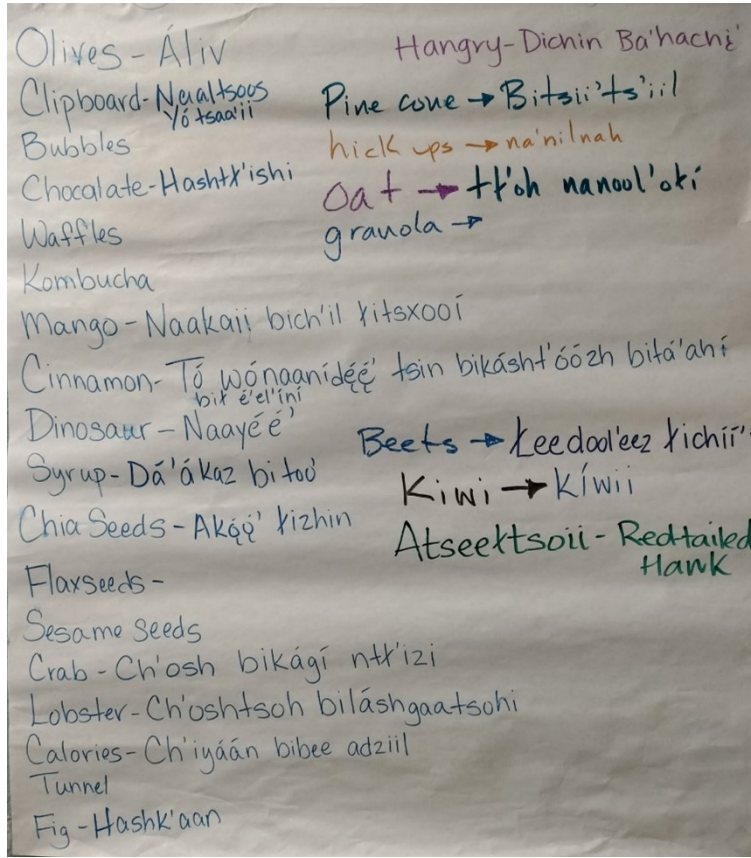 Olives - Áliv
Clipboard - Naaltsoos
Yótsaa'ii
Bubbles
Chocalate - Hashtł'ishi
Waffles
Kombucha
Mango - Naakaii bich'il łitsxooí
Cinnamon - Tó wónaanídę́ę́' tsin bikásht'óózh bitá'ahí
bił é'el'íní
Dinosaur - Naayéé'
Syrup - Dá'ákaz bitoo'
Chia Seeds - Akǫ́ǫ́' łizhin
Flaxseeds -
Sesame Seeds
Crab - Ch'osh bikágí ntł'izi
Lobster - Ch'oshtsoh biláshgaatsohi
Calories - Ch'iyáán bibee adziil
Tunnel
Fig - Hashk'aan
Hangry - Dichin Ba'hachį'
Pine cone → Bitsii'ts'iil
hick ups → na'nilnah
Oat → tł'oh nanool'otí
granola →
Beets → Łeedool'eez łichíí'
Kiwi → Kíwii
Atseełtsoii - Redtailed
Hawk